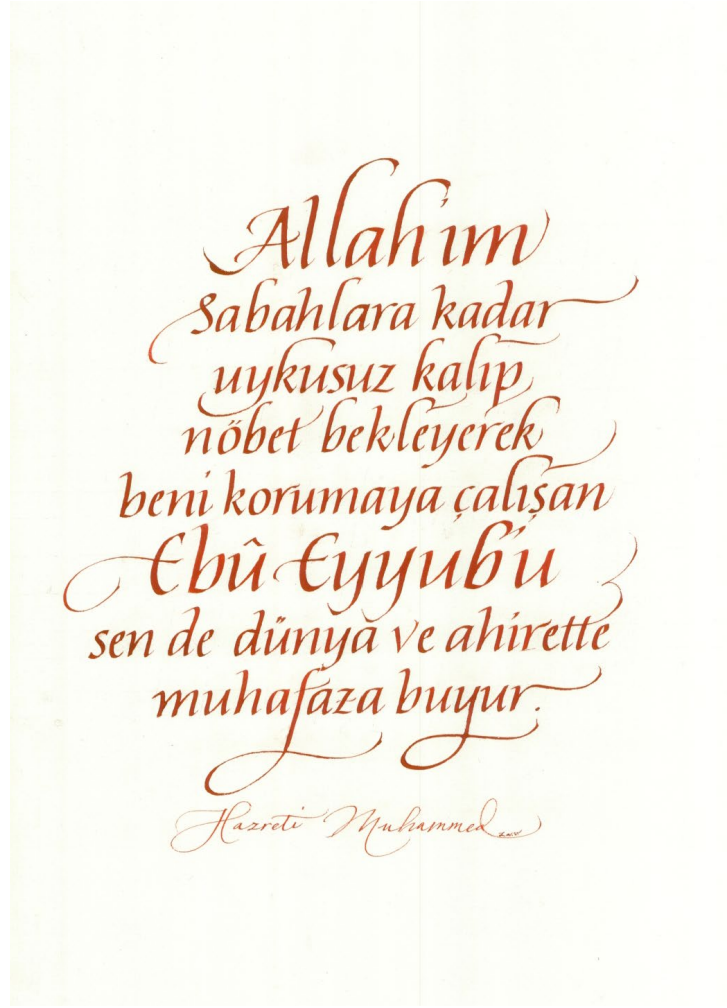 Allah'ım
sabahlara kadar
uykusuz kalıp
nöbet bekleyerek
beni korumaya çalışan
Ebû Eyyub'u
sen de dünya ve ahirette
muhafaza buyur.
Hazreti Muhammed s.a.v